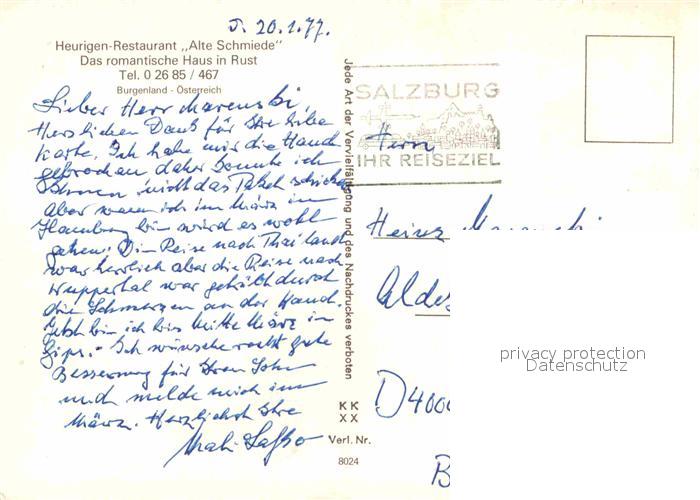 J. 20.1.77.
Heurigen-Restaurant „Alte Schmiede"
Das romantische Haus in Rust
Tel. 0 26 85 / 467
Burgenland - Österreich
Lieber Herr Marenski,
Herzlichen Dank für Ihre liebe
Karte. Ich habe mir die Hand
gebrochen daher konnte ich
Ihnen nicht das Paket schicken
aber wenn ich im März in
Hamburg bin wird es wohl
gehen. Die Reise nach Thailand
war herrlich aber die Reise nach
Wuppertal war getrübt durch
die Schmerzen an der Hand.
Jetzt bin ich bis Mitte März in
Gips.- Ich wünsche recht gute
Besserung für Ihren Sohn
und melde mich im
März. Herzlichst Ihre
Jede Art der Vervielfältigung und des Nachdruckes verboten
KK
XX
Verl. Nr.
8024
SALZBURG
IHR REISEZIEL
Herrn
Heinz Marenski
D 4000
B
privacy protection
Datenschutz